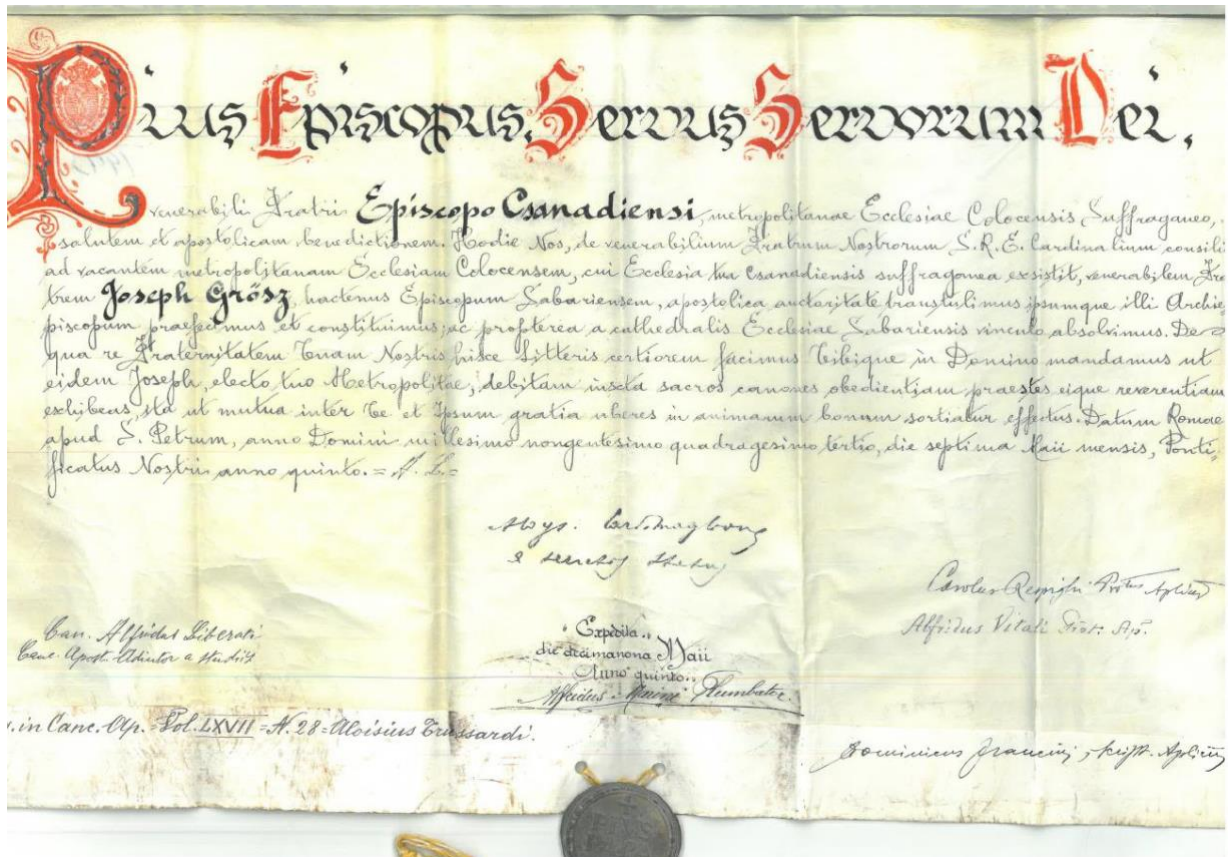 Pius Episcopus, Servus Servorum Dei,
venerabili Fratri Episcopo Csanadiensi, metropolitanae Ecclesiae Colocensis Suffraganeo,
salutem et apostolicam benedictionem. Hodie Nos, de venerabilium Fratrum Nostrorum S. R. E. Cardinalium consili
ad vacantem metropolitanam Ecclesiam Colocensem, cui Ecclesia tua Csanadiensis suffraganea exsistit, venerabilem Fra
trem Joseph Grősz, hactenus Episcopum Sabariensem, apostolica auctoritate transtulimus ipsumque illi Archie
piscopum praefecimus et constituimus; ac propterea a cathedralis Ecclesiae Sabariensis vinculo absolvimus. De
qua re Fraternitatem Tuam Nostris hisce Litteris certiorem facimus Tibique in Domino mandamus ut
eidem Joseph, electo tuo Metropolitae, debitam iuxta sacros canones obedientiam praestes eique reverentiam
exhibeas, ita ut mutua inter Te et Ipsum gratia uberes in animarum bonum sortiatur effectus. Datum Romae
apud S. Petrum, anno Domini millesimo nongentesimo quadragesimo tertio, die septima Maii mensis, Ponti,
ficatus Nostri anno quinto. = A. L. =
Aloys. Card. Maglione
a secretis Status
Carolus Respighi Protus Aplicus
Can. Alfridus Liberati
Canc. Apost. Adiutor a studiis
Alfridus Vitali Prot. Ap.
"Expedita"
die decimanona Maii
Anno quinto"
Alfridus Marini Plumbator
in Canc. Ap. = Vol. LXVII = N. 28 = Aloisius Trussardi.
Dominicus Francini, script. Aplicus